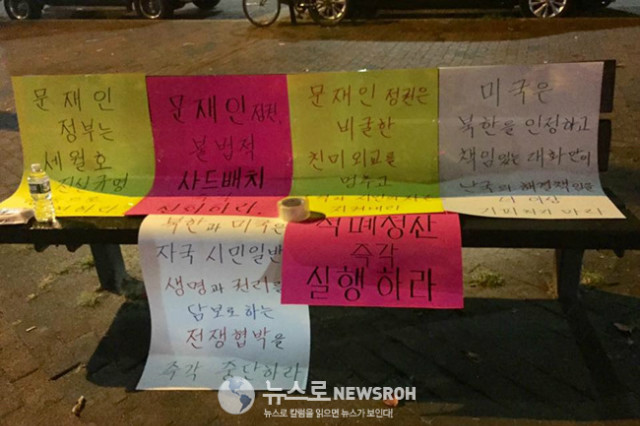 문재인
정부는
세월호
진상규명
문재인 정권,
불법적
사드배치
문재인 정권은
비굴한
친미외교를
멈추고
미국은
북한을 인정하고
책임있는 대화만이
북한과 미국은
자국 시민일반
생명과 권리를
담보로하는
전쟁협박을
즉각 중단하라
적폐청산
즉각
실행하라
뉴스로 NEWSROH
뉴스로 칼럼을 읽으면 뉴스가 보인다!